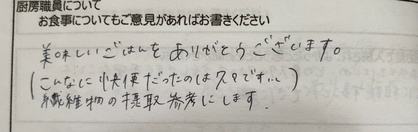 厨房職員について
お食事についてもご意見があればお書きください
美味しいごはんをありがとうございます。
(こんなに快便だったのは久々です…)
繊維物の摂取参考にします。